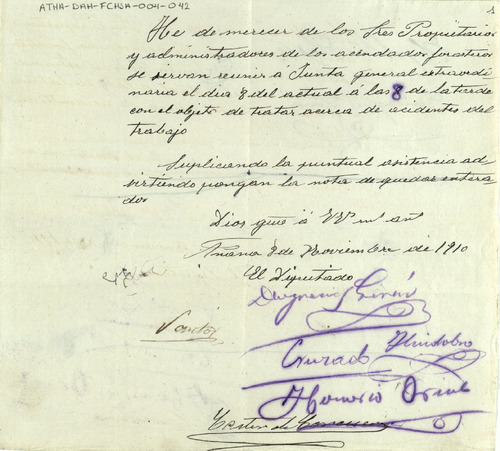 ATHA-DAH-FCHSA-004-042
1
He de merecer de los Sres Propietarios
y administradores de los acendados forasteros
se sirvan reunir á Junta general extraordi
naria el dia 8 del actual á las 8 de la tarde
con el objeto de tratar acerca de acidentes del
trabajo
Suplicando la puntual asistencia ad
virtiendo pongan la nota de quedar entera
dos
Dios gue á VV ms ans
Añana 2 de Noviembre de 1910
El Diputado
Cruzado
Honorio